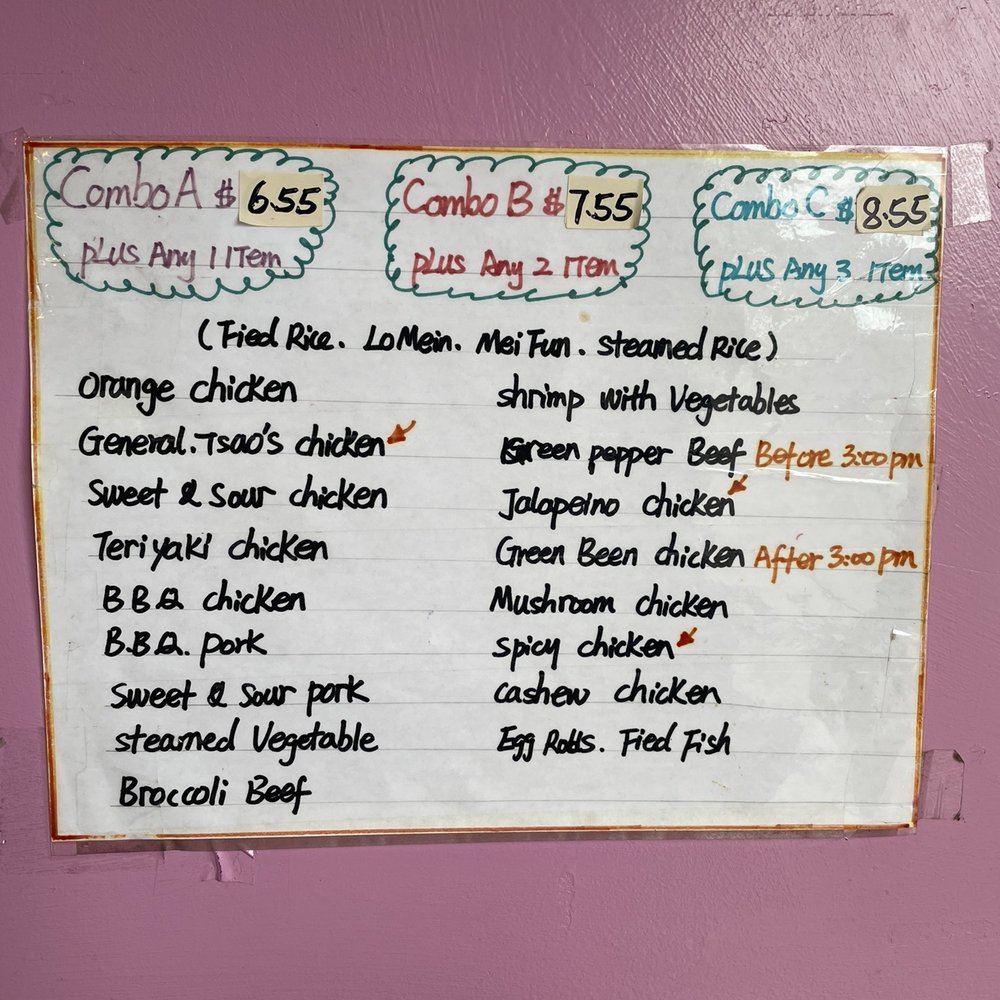 Combo A $ 6.55
plus Any 1 ITem
Combo B $ 7.55
plus Any 2 ITem
Combo C $ 8.55
plus Any 3 ITem
(Fied Rice. Lo Mein. Mei Fun. Steamed Rice)
Orange chicken
General.Tsao's chicken
Sweet & Sour chicken
Teriyaki chicken
BBQ chicken
B.B.Q. pork
Sweet & Sour pork
steamed Vegetable
Broccoli Beef
shrimp with Vegetables
Green pepper Beef Before 3:00 pm
Jalapeino chicken
Green Been chicken After 3:00 pm
Mushroom chicken
spicy chicken
cashew chicken
Egg Rolls. Fied Fish